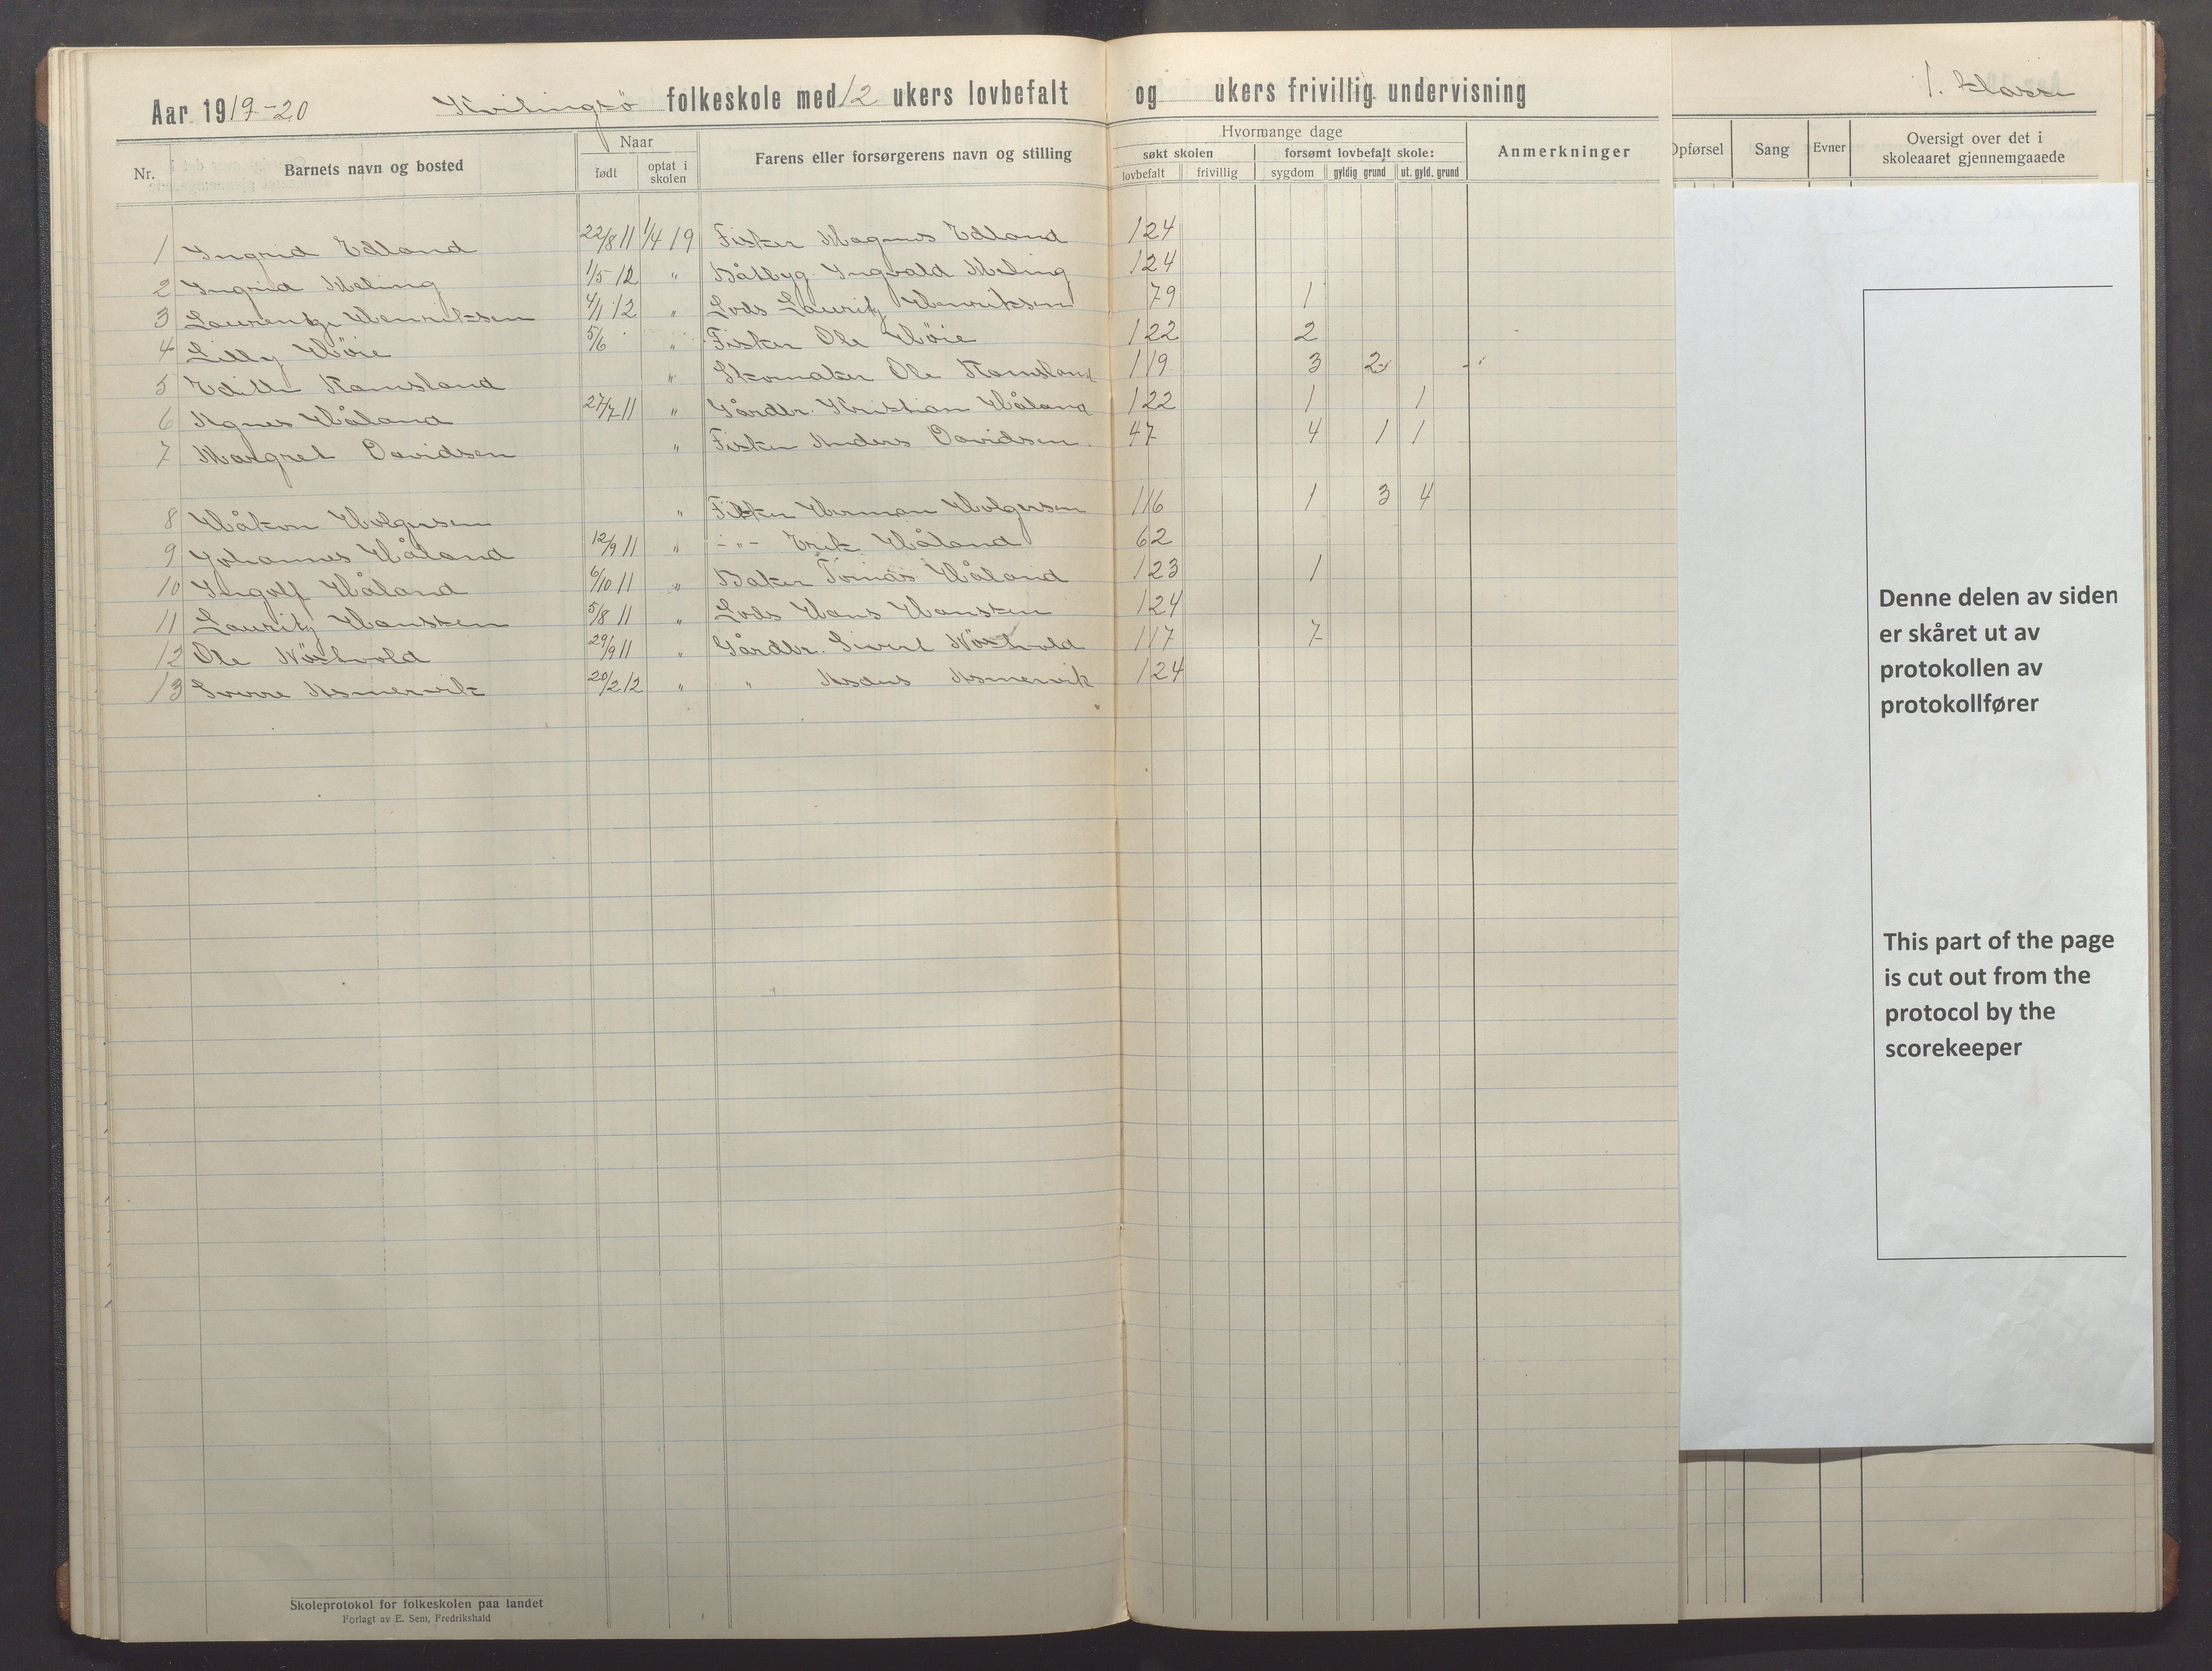 Aar 1919-20 Kvitingsö folkeskole med 12 ukers lovbefalt og ukers frivillig undervisning
1. klasse
Nr. Barnets navn og bosted Naar født optat i skolen Farens eller forsørgerens navn og stilling Hvormange dage søkt skolen lovbefalt frivillig forsømt lovbefalt skole: sygdom gyldig grund ut. gyld. grund Anmerkninger
Opførsel Sang Evner Oversigt over det i skoleaaret gjennemgaaede
1 Ingrid Edland 22/8 11 1/4 19 Fisker Magnus Edland 124
2 Ingrid Meling 1/5 12 " Båtbyg. Ingvald Meling 124
3 Laurentze Henriksen 4/1 12 " Lods Lauritz Henriksen 79 1
4 Lilly Höie 5/6 " Fisker Ole Höie 122 2
5 Edith Ramsland " Skomaker Ole Ramsland 119 3 2
6 Agnes Håland 27/7 11 " Gårdbr. Kristian Håland 122 1 1
7 Margret Davidsen " Fisker Anders Davidsen. 47 4 1 1
8 Håkon Holgersen " Fisker Herman Holgersen 116 1 3 4
9 Johannes Håland 12/9 11 " -"- Erik Håland 62
10 Ingolf Håland 6/10 11 " Baker Tomas Håland 123 1
11 Lauritz Hansken 5/8 11 " Lods Hans Hansken 124
12 Ole Nöstvold 29/9 11 " Gårdbr. Sivert Nöstvold 117 7
13 Sverre Asmervik 20/2 12 " " Asaus Asmervik 124
Denne delen av siden
er skåret ut av
protokollen av
protokollfører
This part of the page
is cut out from the
protocol by the
scorekeeper
Skoleprotokol for folkeskolen paa landet
Forlagt av E. Sem, Fredrikshald